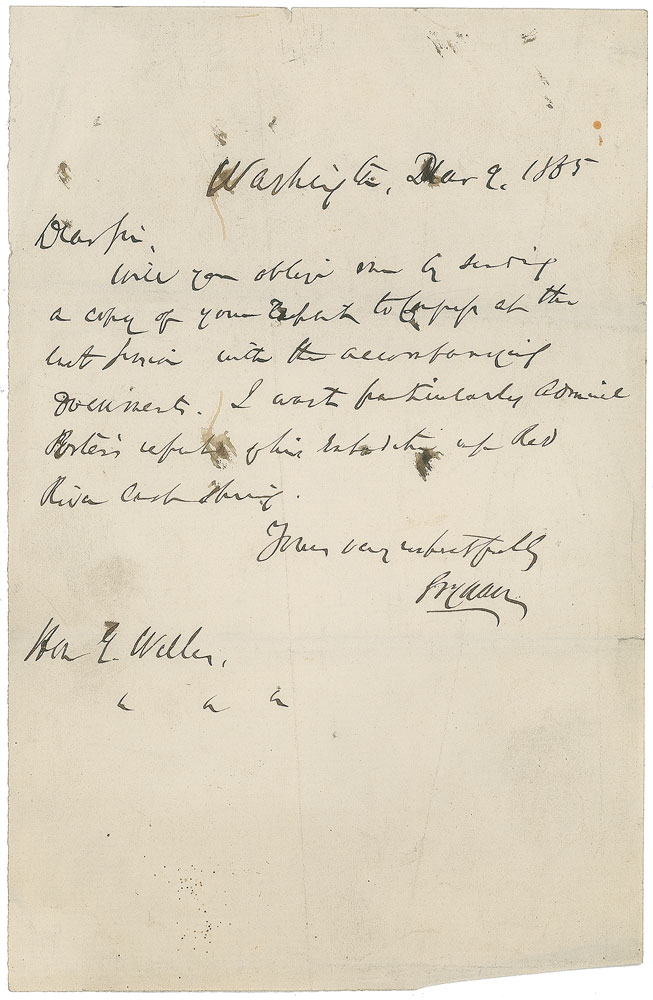 Washington, Mar 9. 1865
Dear Sir,
Will you oblige me by sending
a copy of your Report to Congress at the
last session with the accompanying
Documents. I want particularly Admiral
Porter's report of his Expedition up Red
River last spring.
Yours very respectfully
Hon G. Welles,
" " "